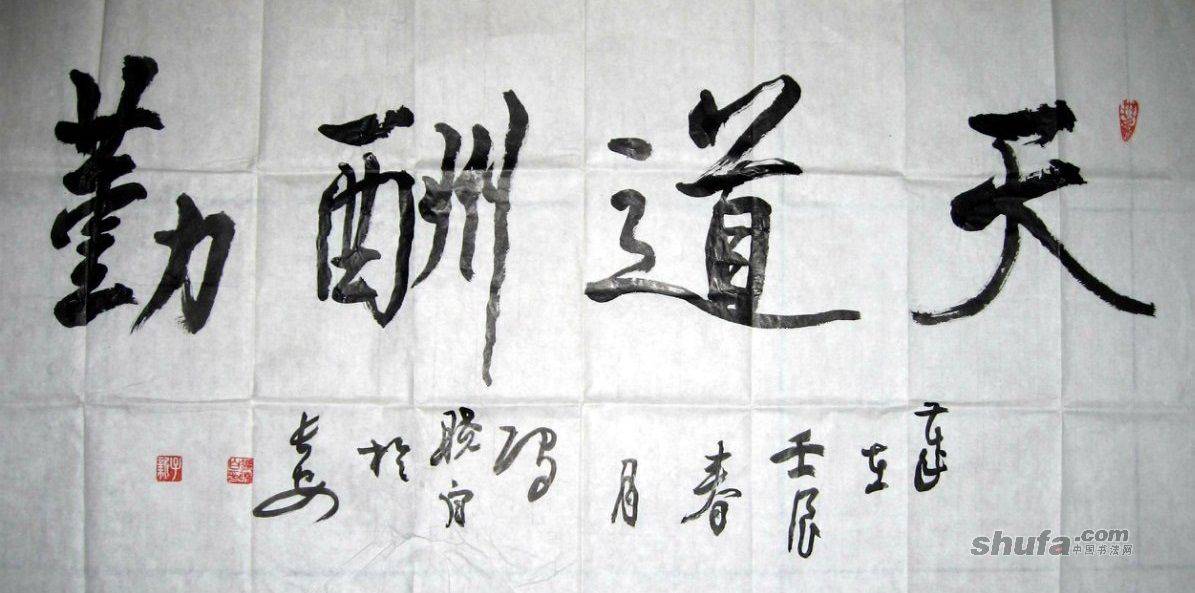 天道酬勤
歲在壬辰春月於长安
shufa.com
中国书法网